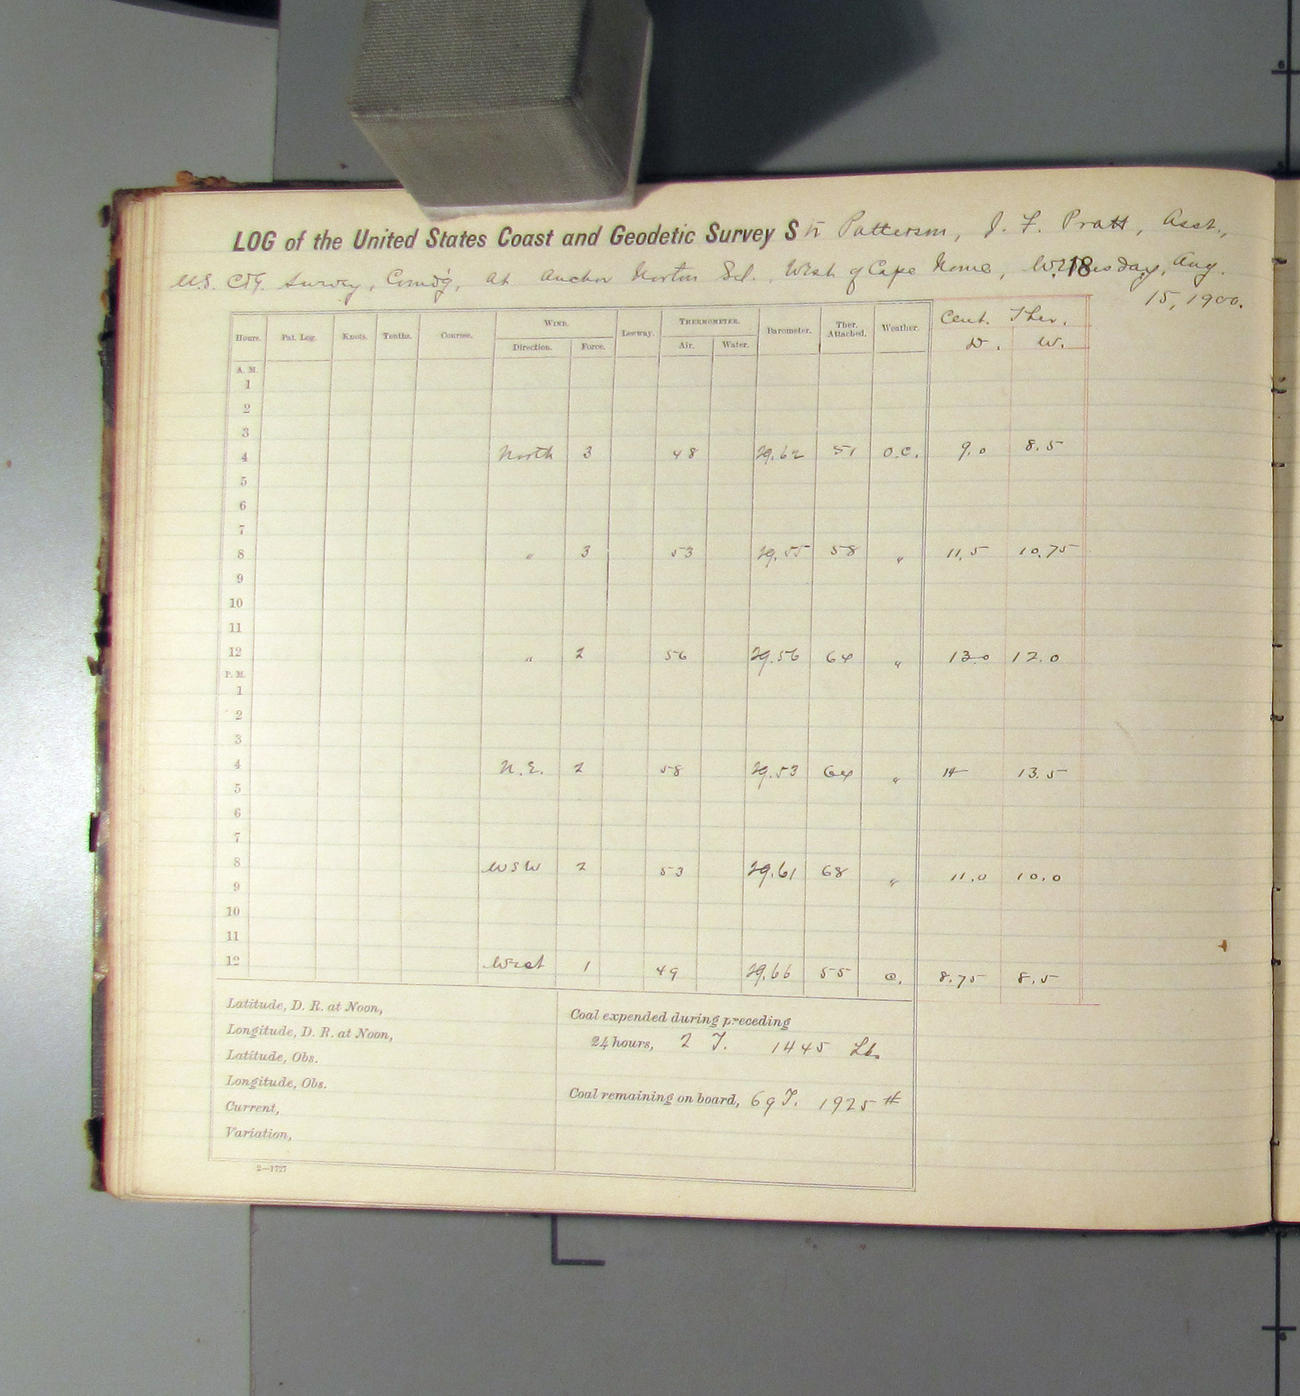 LOG of the United States Coast and Geodetic Survey Str Patterson, J. F. Pratt, Asst.,
U.S. C&G. Survey, Comd'g, at Anchor Norton Sd. West of Cape Nome, Wednesday, Aug.
15, 1900.
Hours. Pat. Log. Knots. Tenths. Courses. WIND. Direction. Force. Leeway. THERMOMETER. Air. Water. Barometer. Ther. Attached. Weather. Cent. Ther. D. W.
A. M.
1
2
3
4 North 3 48 29.62 51 O.C. 9.0 8.5
5
6
7
8 " 3 53 29.55 58 " 11.5 10.75
9
10
11
12 " 2 56 29.56 64 " 13.0 12.0
P. M.
1
2
3
4 N.E. 2 58 29.53 64 " 14 13.5
5
6
7
8 WSW 2 53 29.61 68 " 11.0 10.0
9
10
11
12 West 1 49 29.66 55 O. 8.75 8.5
Latitude, D. R. at Noon,
Longitude, D. R. at Noon,
Latitude, Obs.
Longitude, Obs.
Current,
Variation,
Coal expended during preceding
24 hours, 2 T. 1445 Lbs
Coal remaining on board, 69 T. 1925 #
2—1727